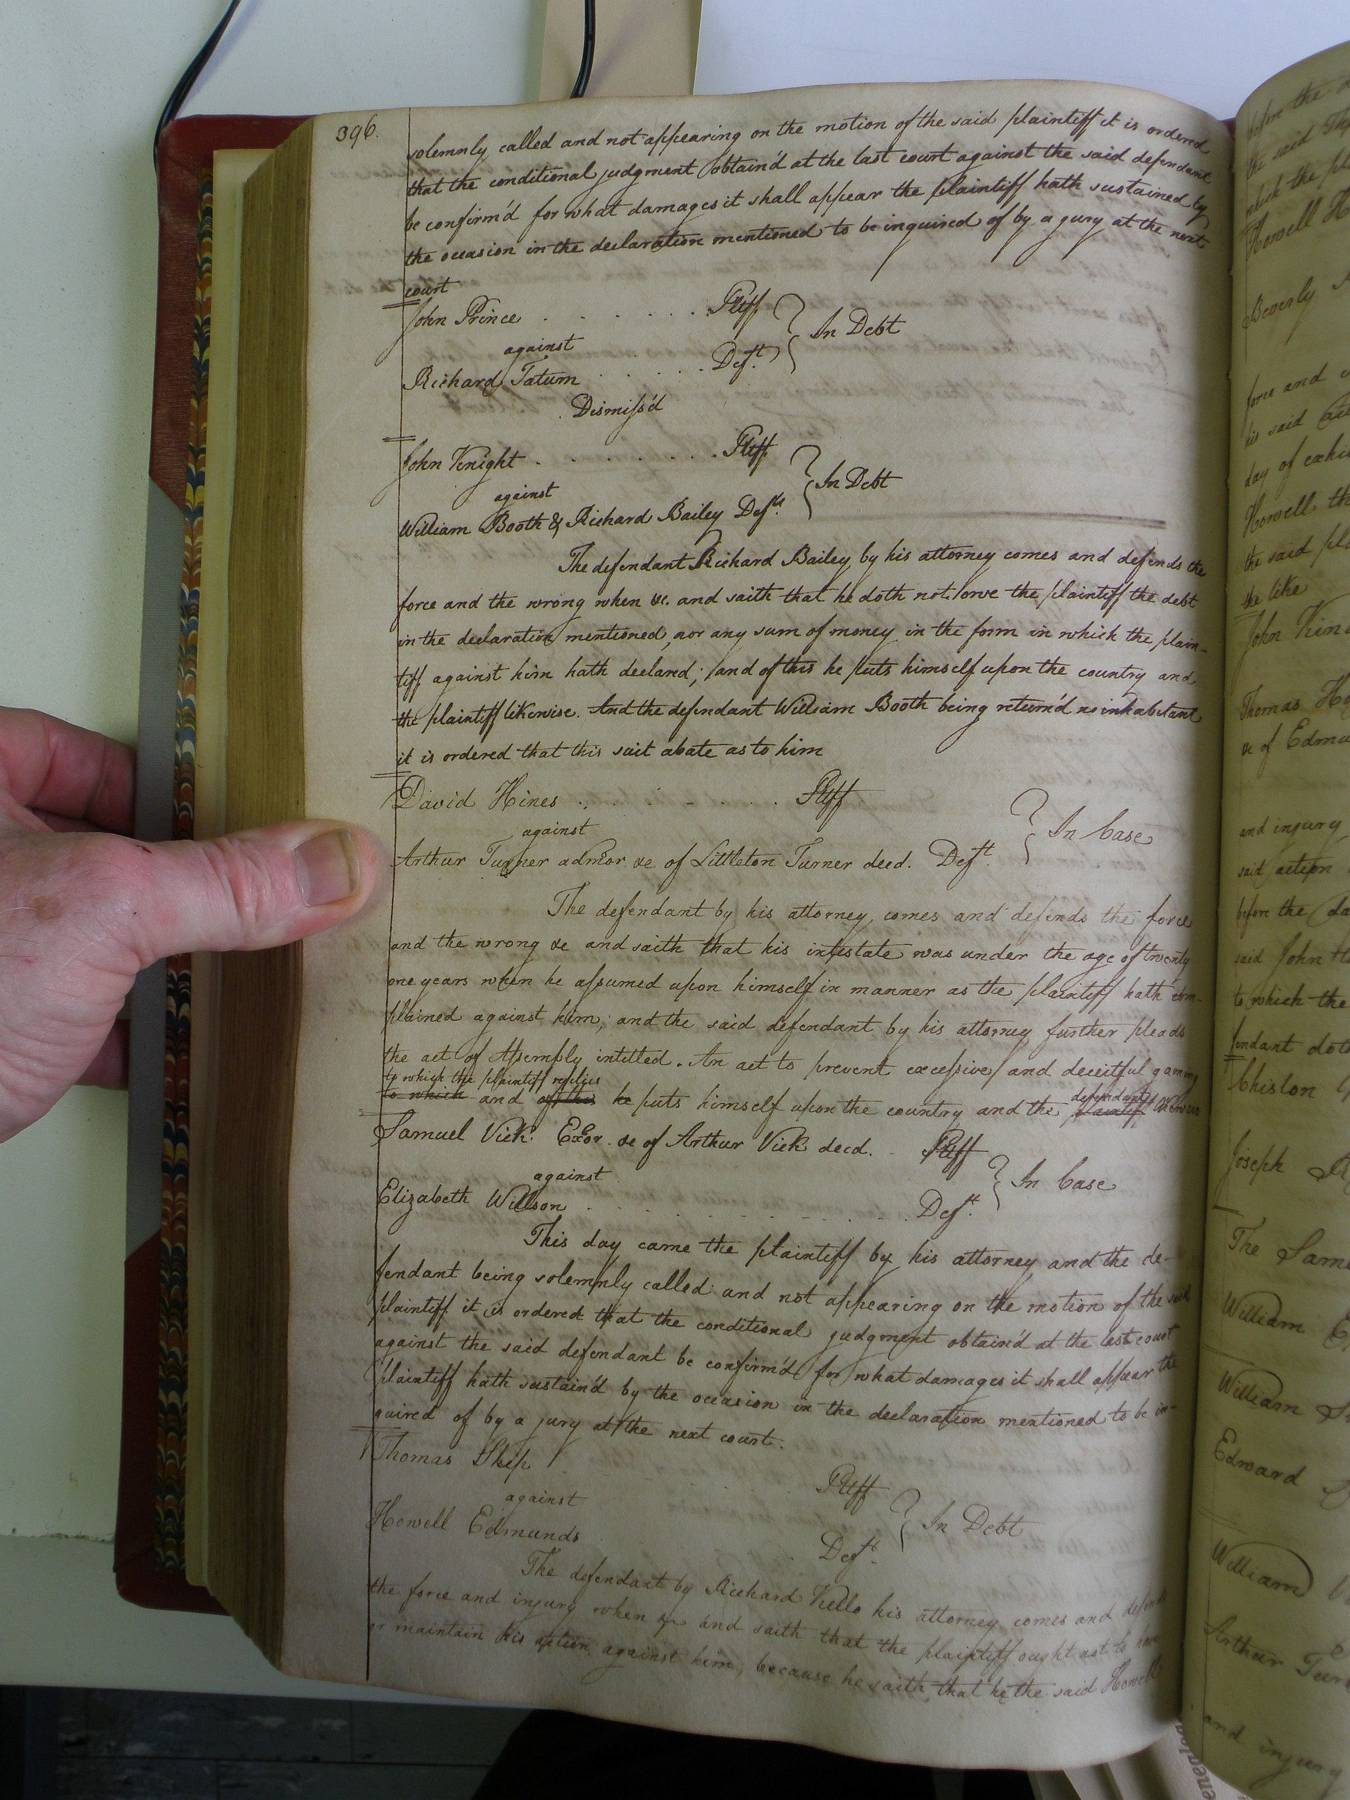 396.
solemnly called and not appearing on the motion of the said plaintiff it is ordered
that the conditional judgment obtain'd at the last court against the said defendant
be confirm'd for what damages it shall appear the plaintiff hath sustained by
the occasion in the declaration mentioned to be inquired of by a jury at the next
court
John Prince . . . . . . . Pltff
against } In Debt
Richard Tatum . . . . . Deft.
Dismiss'd
John Knight . . . . . . . Pltff
against } In Debt
William Booth & Richard Bailey Defts.
The defendant Richard Bailey by his attorney comes and defends the
force and the wrong when &c. and saith that he doth not owe the plaintiff the debt
in the declaration mentioned, nor any sum of money in the form in which the plain-
tiff against him hath declared; and of this he puts himself upon the country and
the plaintiff likewise. And the defendant William Booth being return'd no inhabitant
it is ordered that this suit abate as to him
David Hines . . . . . . Pltff
against } In Case
Arthur Turner admor &c of Littleton Turner decd. Deft.
The defendant by his attorney, comes and defends the force
and the wrong &c and saith that his intestate was under the age of twenty
one years when he assumed upon himself in manner as the plaintiff hath com-
plained against him; and the said defendant by his attorney further pleads
the act of Assembly intitled. An act to prevent excessive and deceitful gaming
to which the plaintiff replies
to which and of this he puts himself upon the country and the plaintiff defendant likewise
Samuel Vick Exor. &c of Arthur Vick decd. . Pltff
against } In Case
Elizabeth Willson . . . . . . . . Deft.
This day came the plaintiff by his attorney and the de-
fendant being solemnly called and not appearing on the motion of the said
plaintiff it is ordered that the conditional judgment obtain'd at the last court
against the said defendant be confirm'd for what damages it shall appear the
plaintiff hath sustain'd by the occasion in the declaration mentioned to be in-
quired of by a jury at the next court.
Thomas Ship Pltff
against } In Debt
Howell Edmunds Deft.
The defendant by Richard Kello his attorney comes and defends
the force and injury when &c and saith that the plaintiff ought not to have
or maintain his action against him, because he saith that he the said Howell